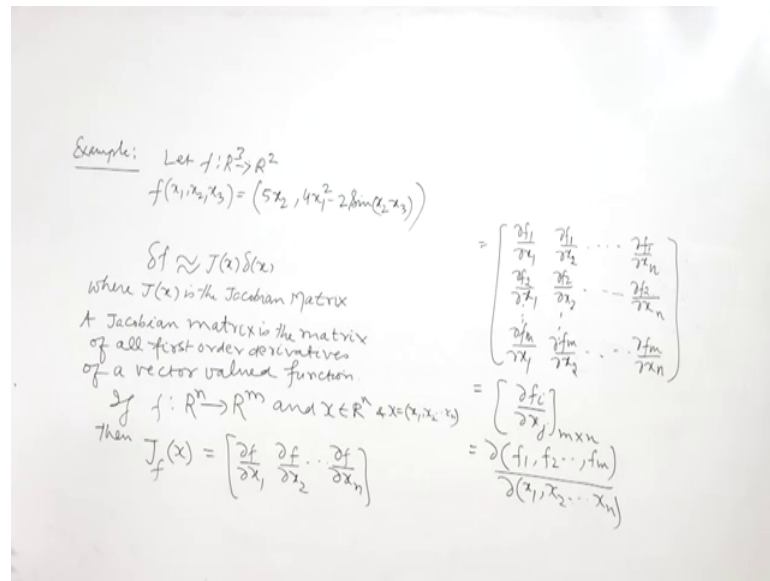 Example: Let f: R³→R²
f(x₁,x₂,x₃) = (5x₂, 4x₁² - 2 Sin(x₂x₃))
δf ≈ J(x)δ(x)
where J(x) is the Jacobian Matrix
A Jacobian matrix is the matrix
of all first order derivatives
of a vector valued function.
If f: Rⁿ→Rᵐ and x∈Rⁿ & x=(x₁,x₂...xₙ)
then J_f(x) = [∂f/∂x₁ ∂f/∂x₂ ... ∂f/∂xₙ]
= [∂f₁/∂x₁ ∂f₁/∂x₂ .... ∂f₁/∂xₙ
∂f₂/∂x₁ ∂f₂/∂x₂ .... ∂f₂/∂xₙ
⋮ ⋮
∂fₘ/∂x₁ ∂fₘ/∂x₂ .... ∂fₘ/∂xₙ]
= [∂fᵢ/∂xⱼ]ₘₓₙ
= ∂(f₁, f₂.., fₘ)/∂(x₁, x₂... xₙ)